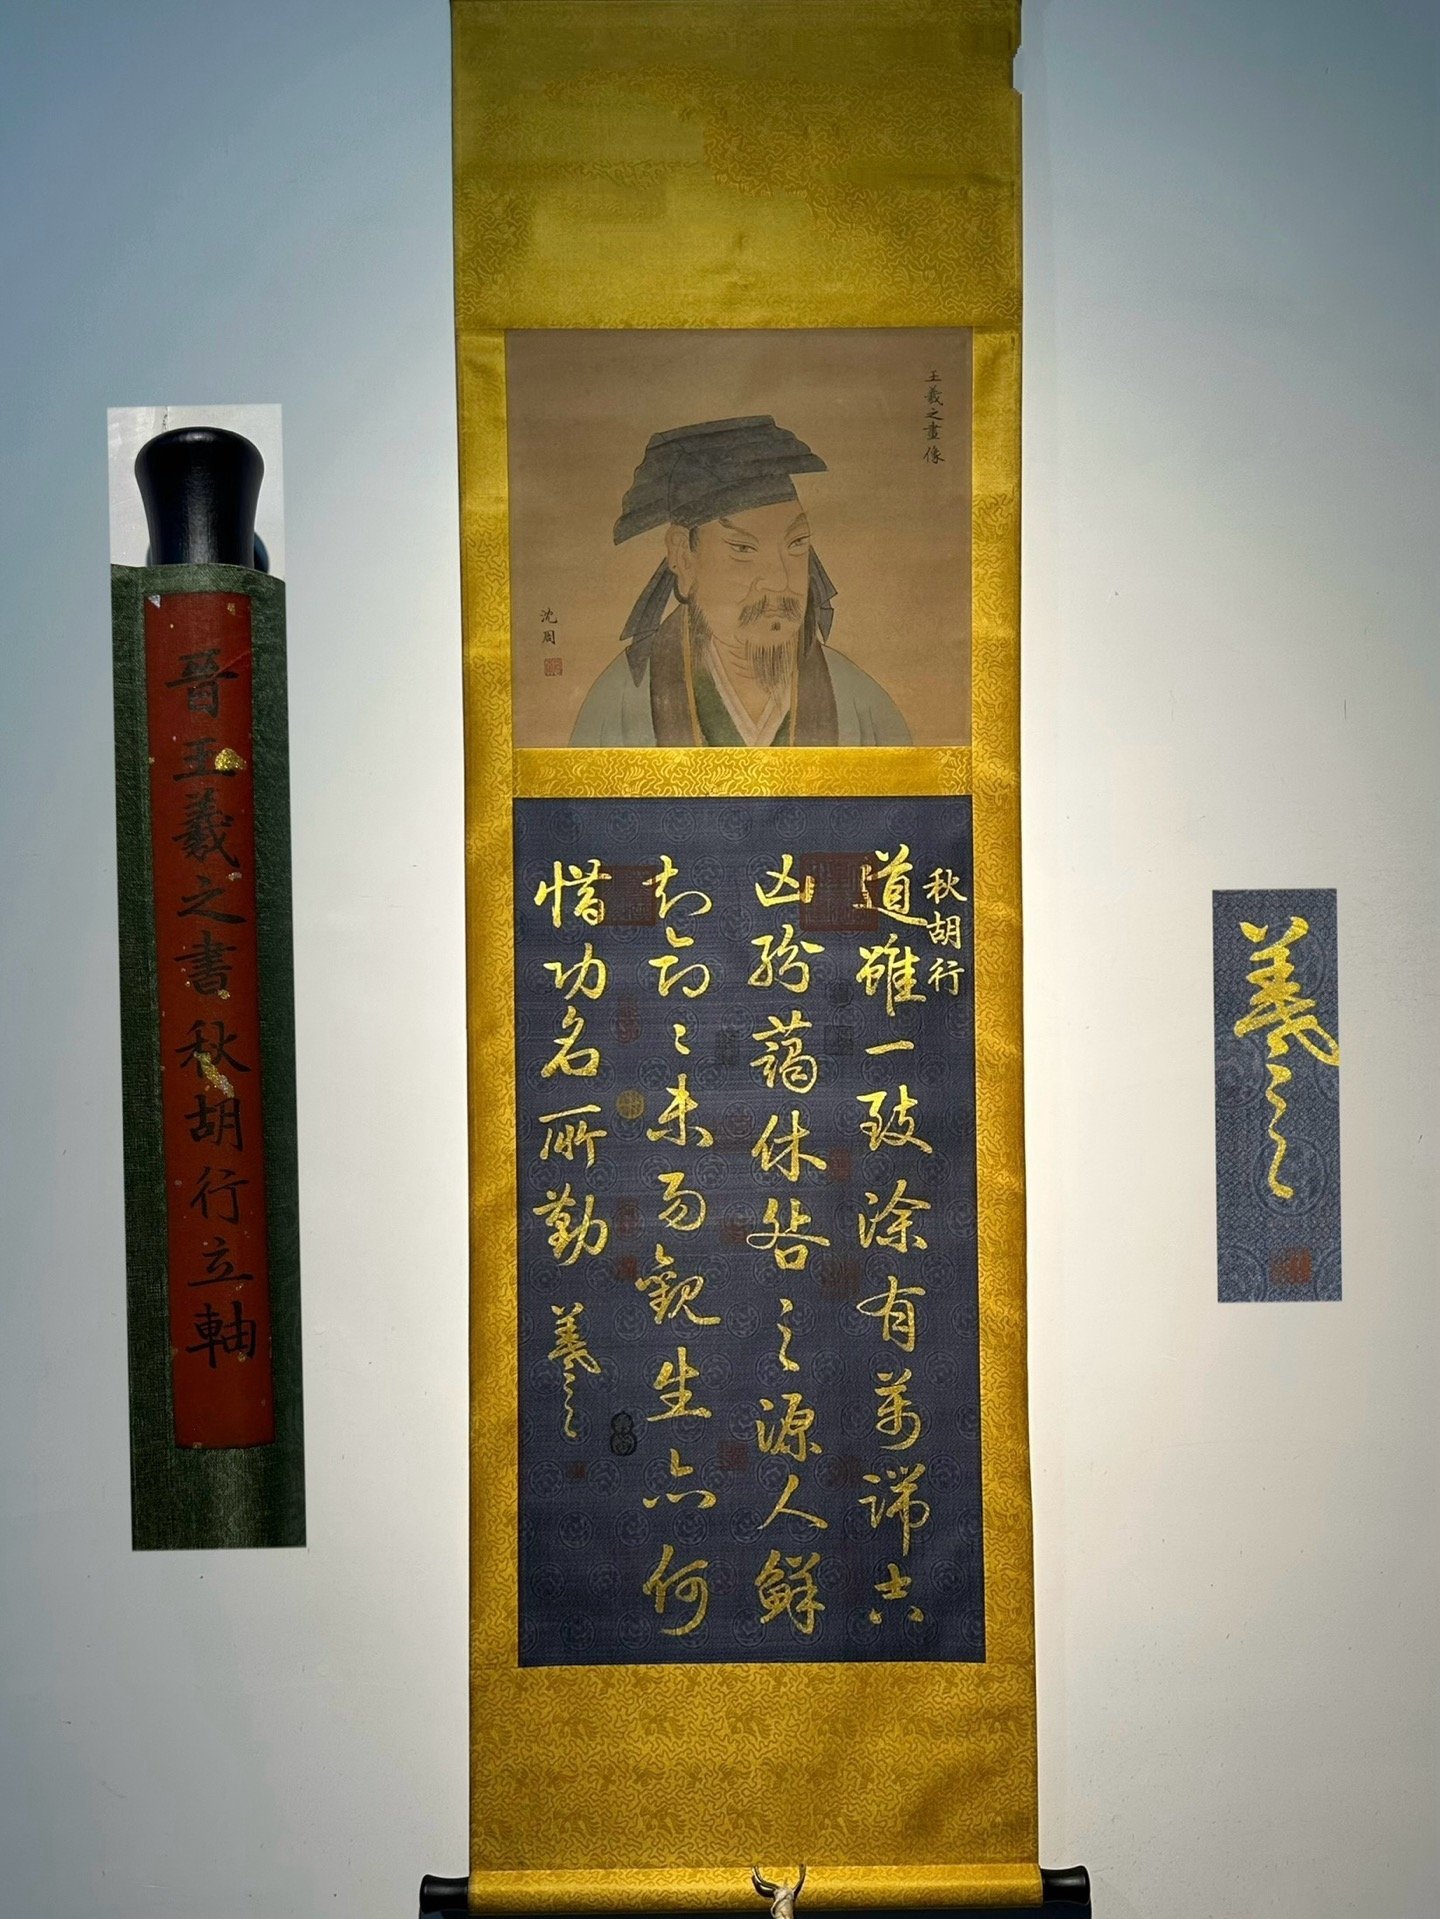 晉王羲之書秋胡行立軸
王羲之畫像
沈周
秋胡行
道雖一致塗有萬端吉
凶紛藹休咎之源人鮮
知命命未易觀生亦何
惜功名所勤
羲之
羲之